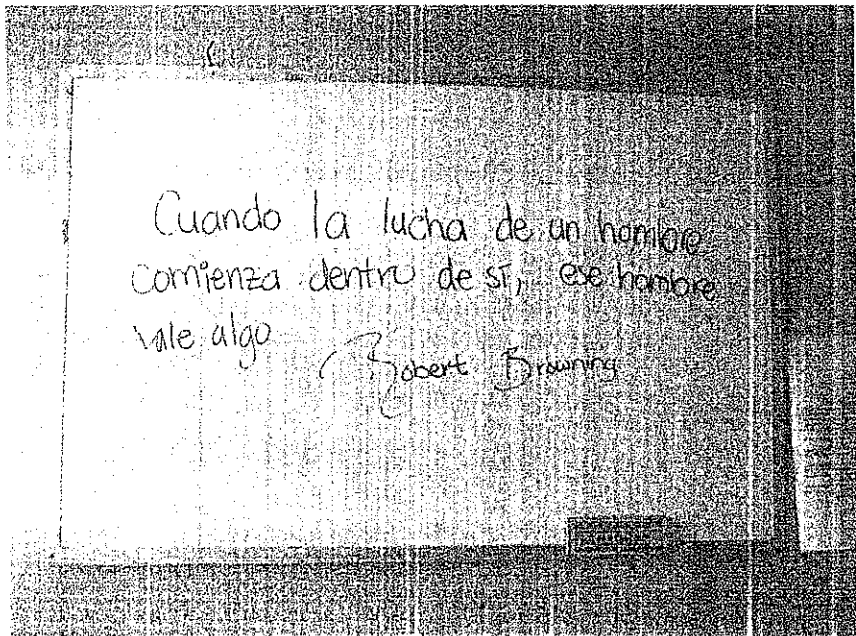 Cuando la lucha de un hombre
comienza dentro de sí, ese hombre
vale algo
Robert Browning